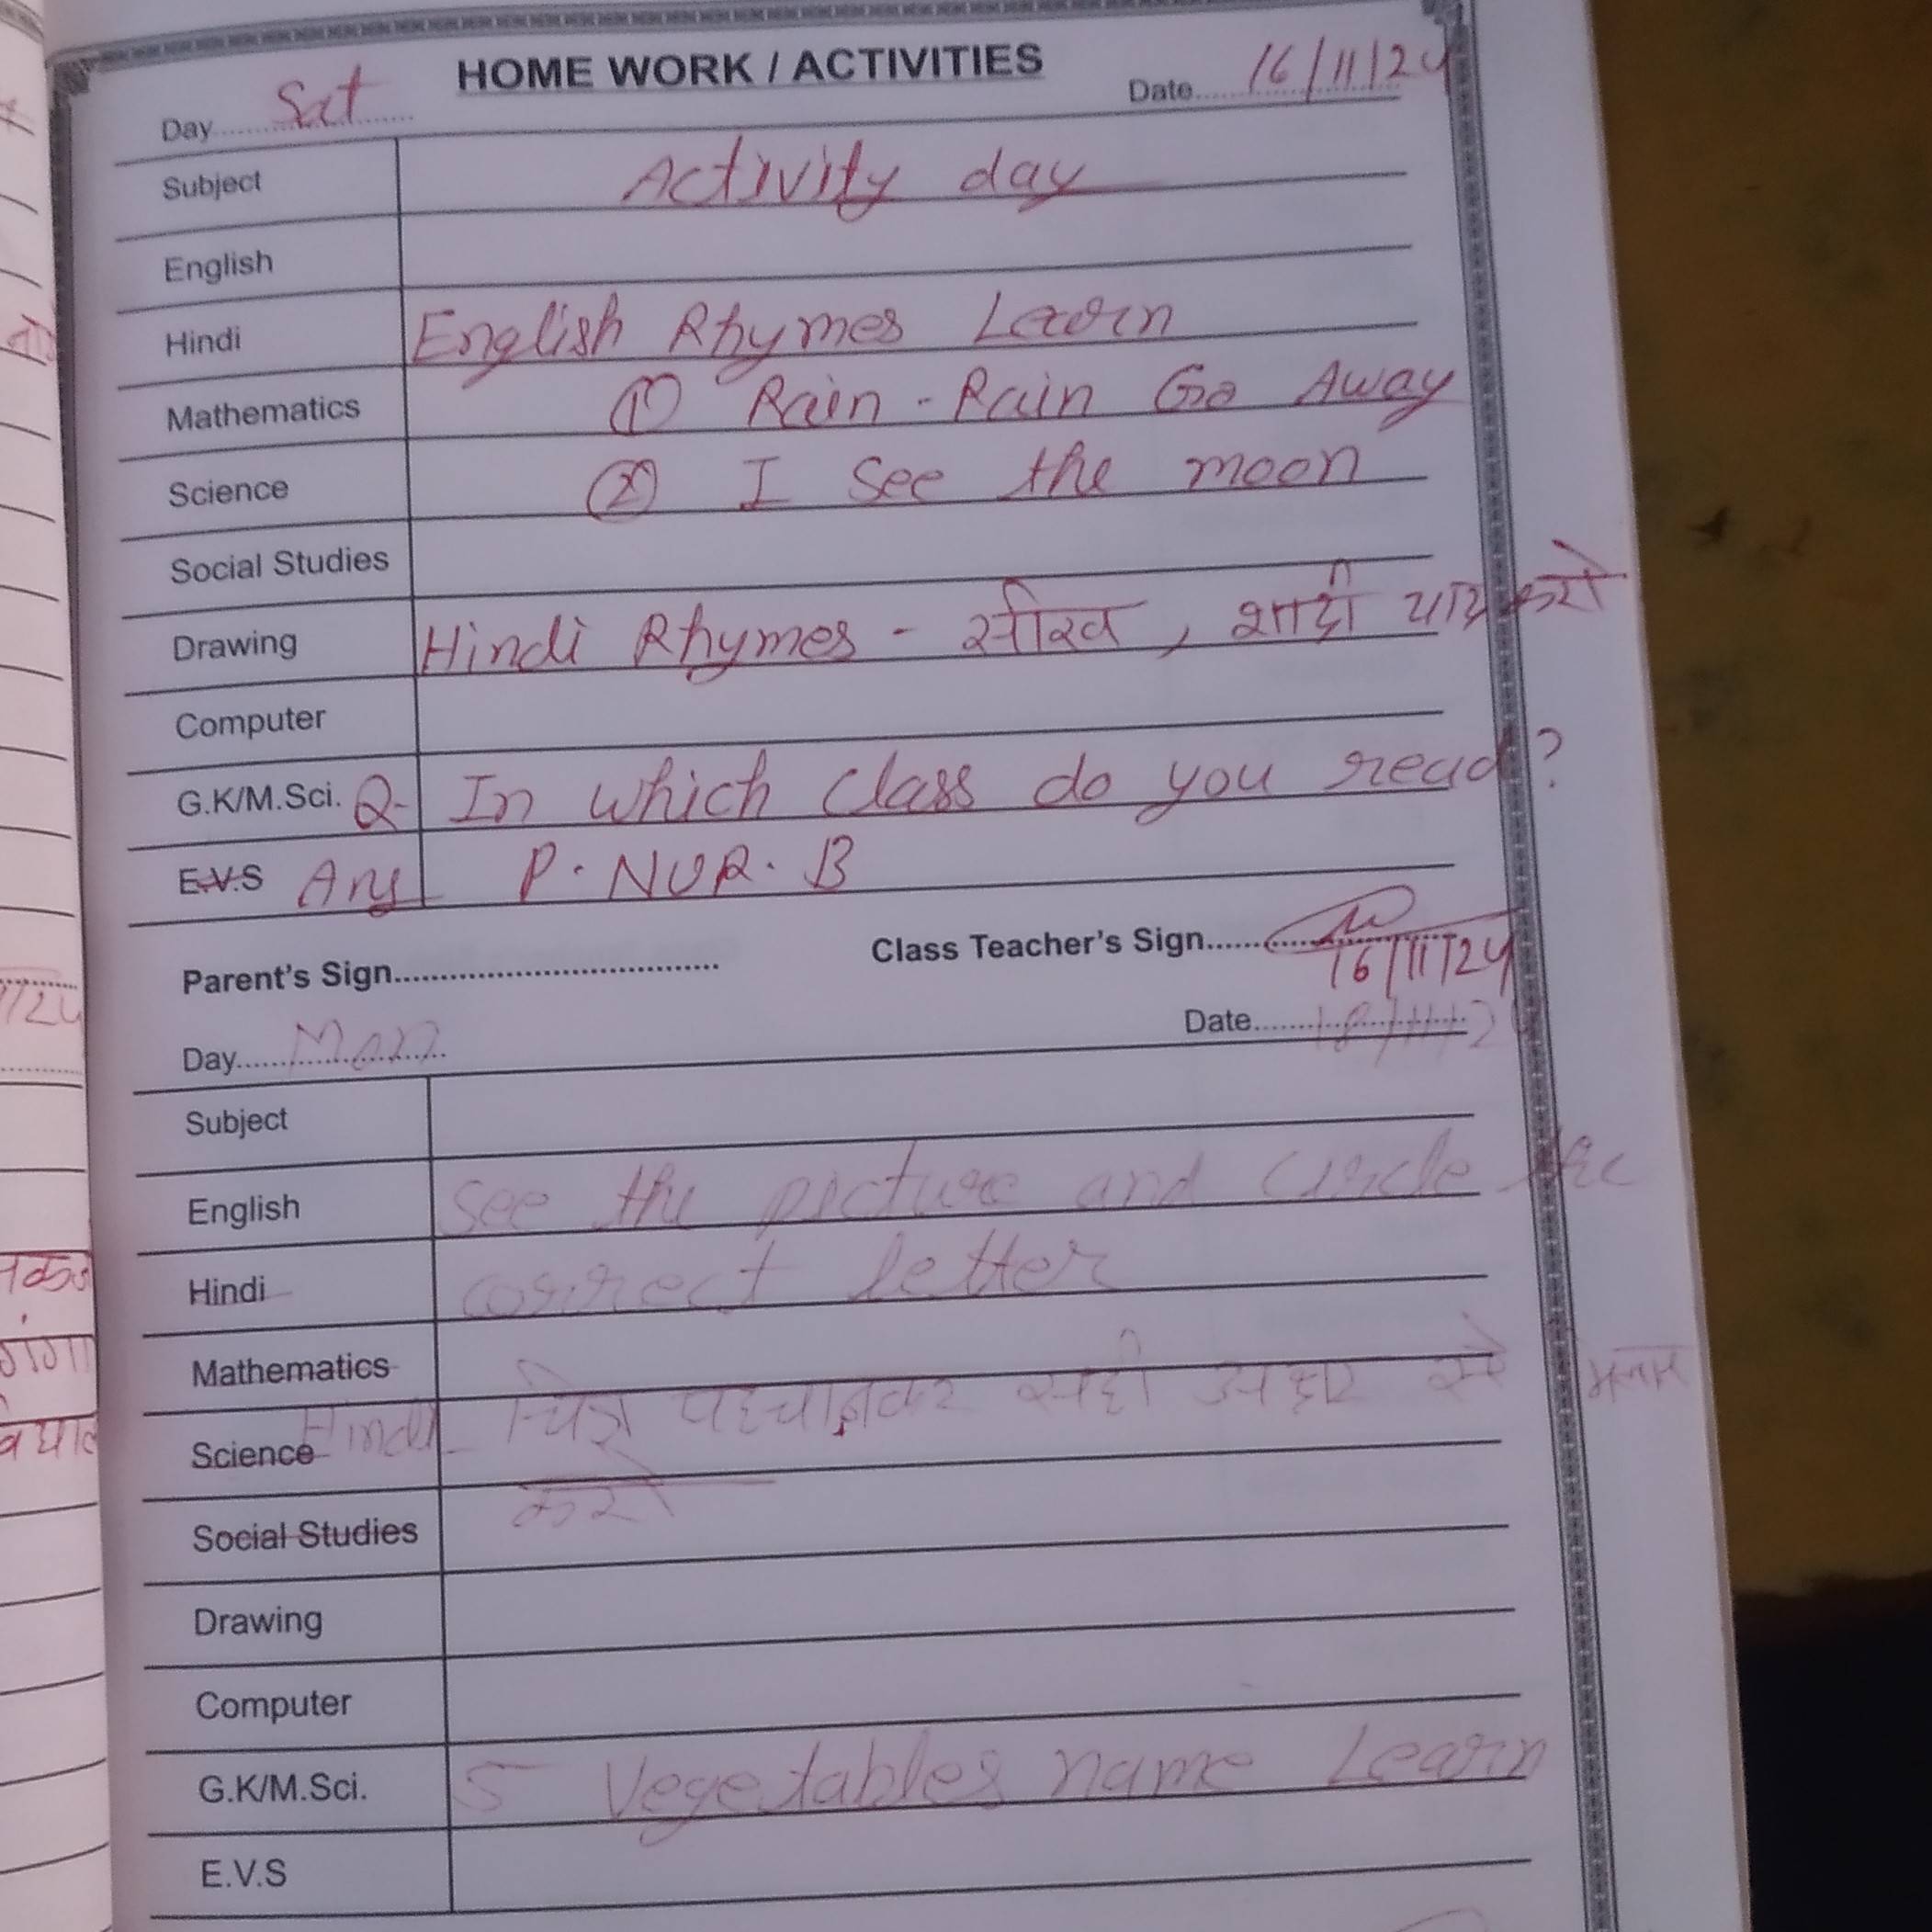 HOME WORK / ACTIVITIES
Day Sat Date 16/11/24
Subject Activity day
English
Hindi English Rhymes Learn
Mathematics (1) Rain - Rain Go Away
Science (2) I see the moon
Social Studies
Drawing Hindi Rhymes - सीख, शादी याद करो
Computer
G.K/M.Sci. Q- In which class do you read?
E.V.S Ans P. NUR. B
Parent's Sign Class Teacher's Sign
16/11/24
Day Mon Date 18/11/2
Subject
English See the picture and circle the
Hindi correct letter
Mathematics
Science Hindi - चित्र पहचानकर सही अक्षर से
करो
Social Studies
Drawing
Computer
G.K/M.Sci. 5 Vegetables name Learn
E.V.S